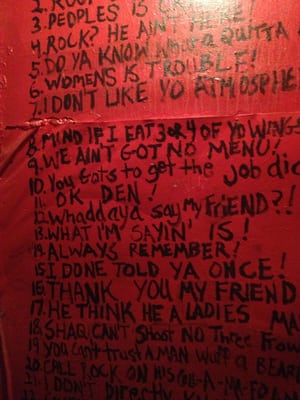 2. ROO
3. PEOPLES IS CR
4. ROCK? HE AIN'T HERE!
5. DO YA KNOW A QUITTA
6. WOMENS IS TROUBLE!
7. I DON'T LIKE YO ATMOSPHE
8. MIND IF I EAT 3 OR 4 OF YO WINGS
9. WE AIN'T GOT NO MENU!
10. You Gots to get the job did
11. OK DEN!
12. whaddaya say my FRIEND?!
13. WHAT I'M SAYIN' IS!
14. ALWAYS REMEMBER!
15. I DONE TOLD YA ONCE!
16. THANK YOU MY FRIEND
17. HE THINK HE A LADIES MA
18. SHAQ CAN'T SHOOT NO Three Frow
19. YOU can't trust A MAN WUFF a BEAR
20. CALL ROCK ON HIS CELL-A-MA-FO
21. I DON'T Directly